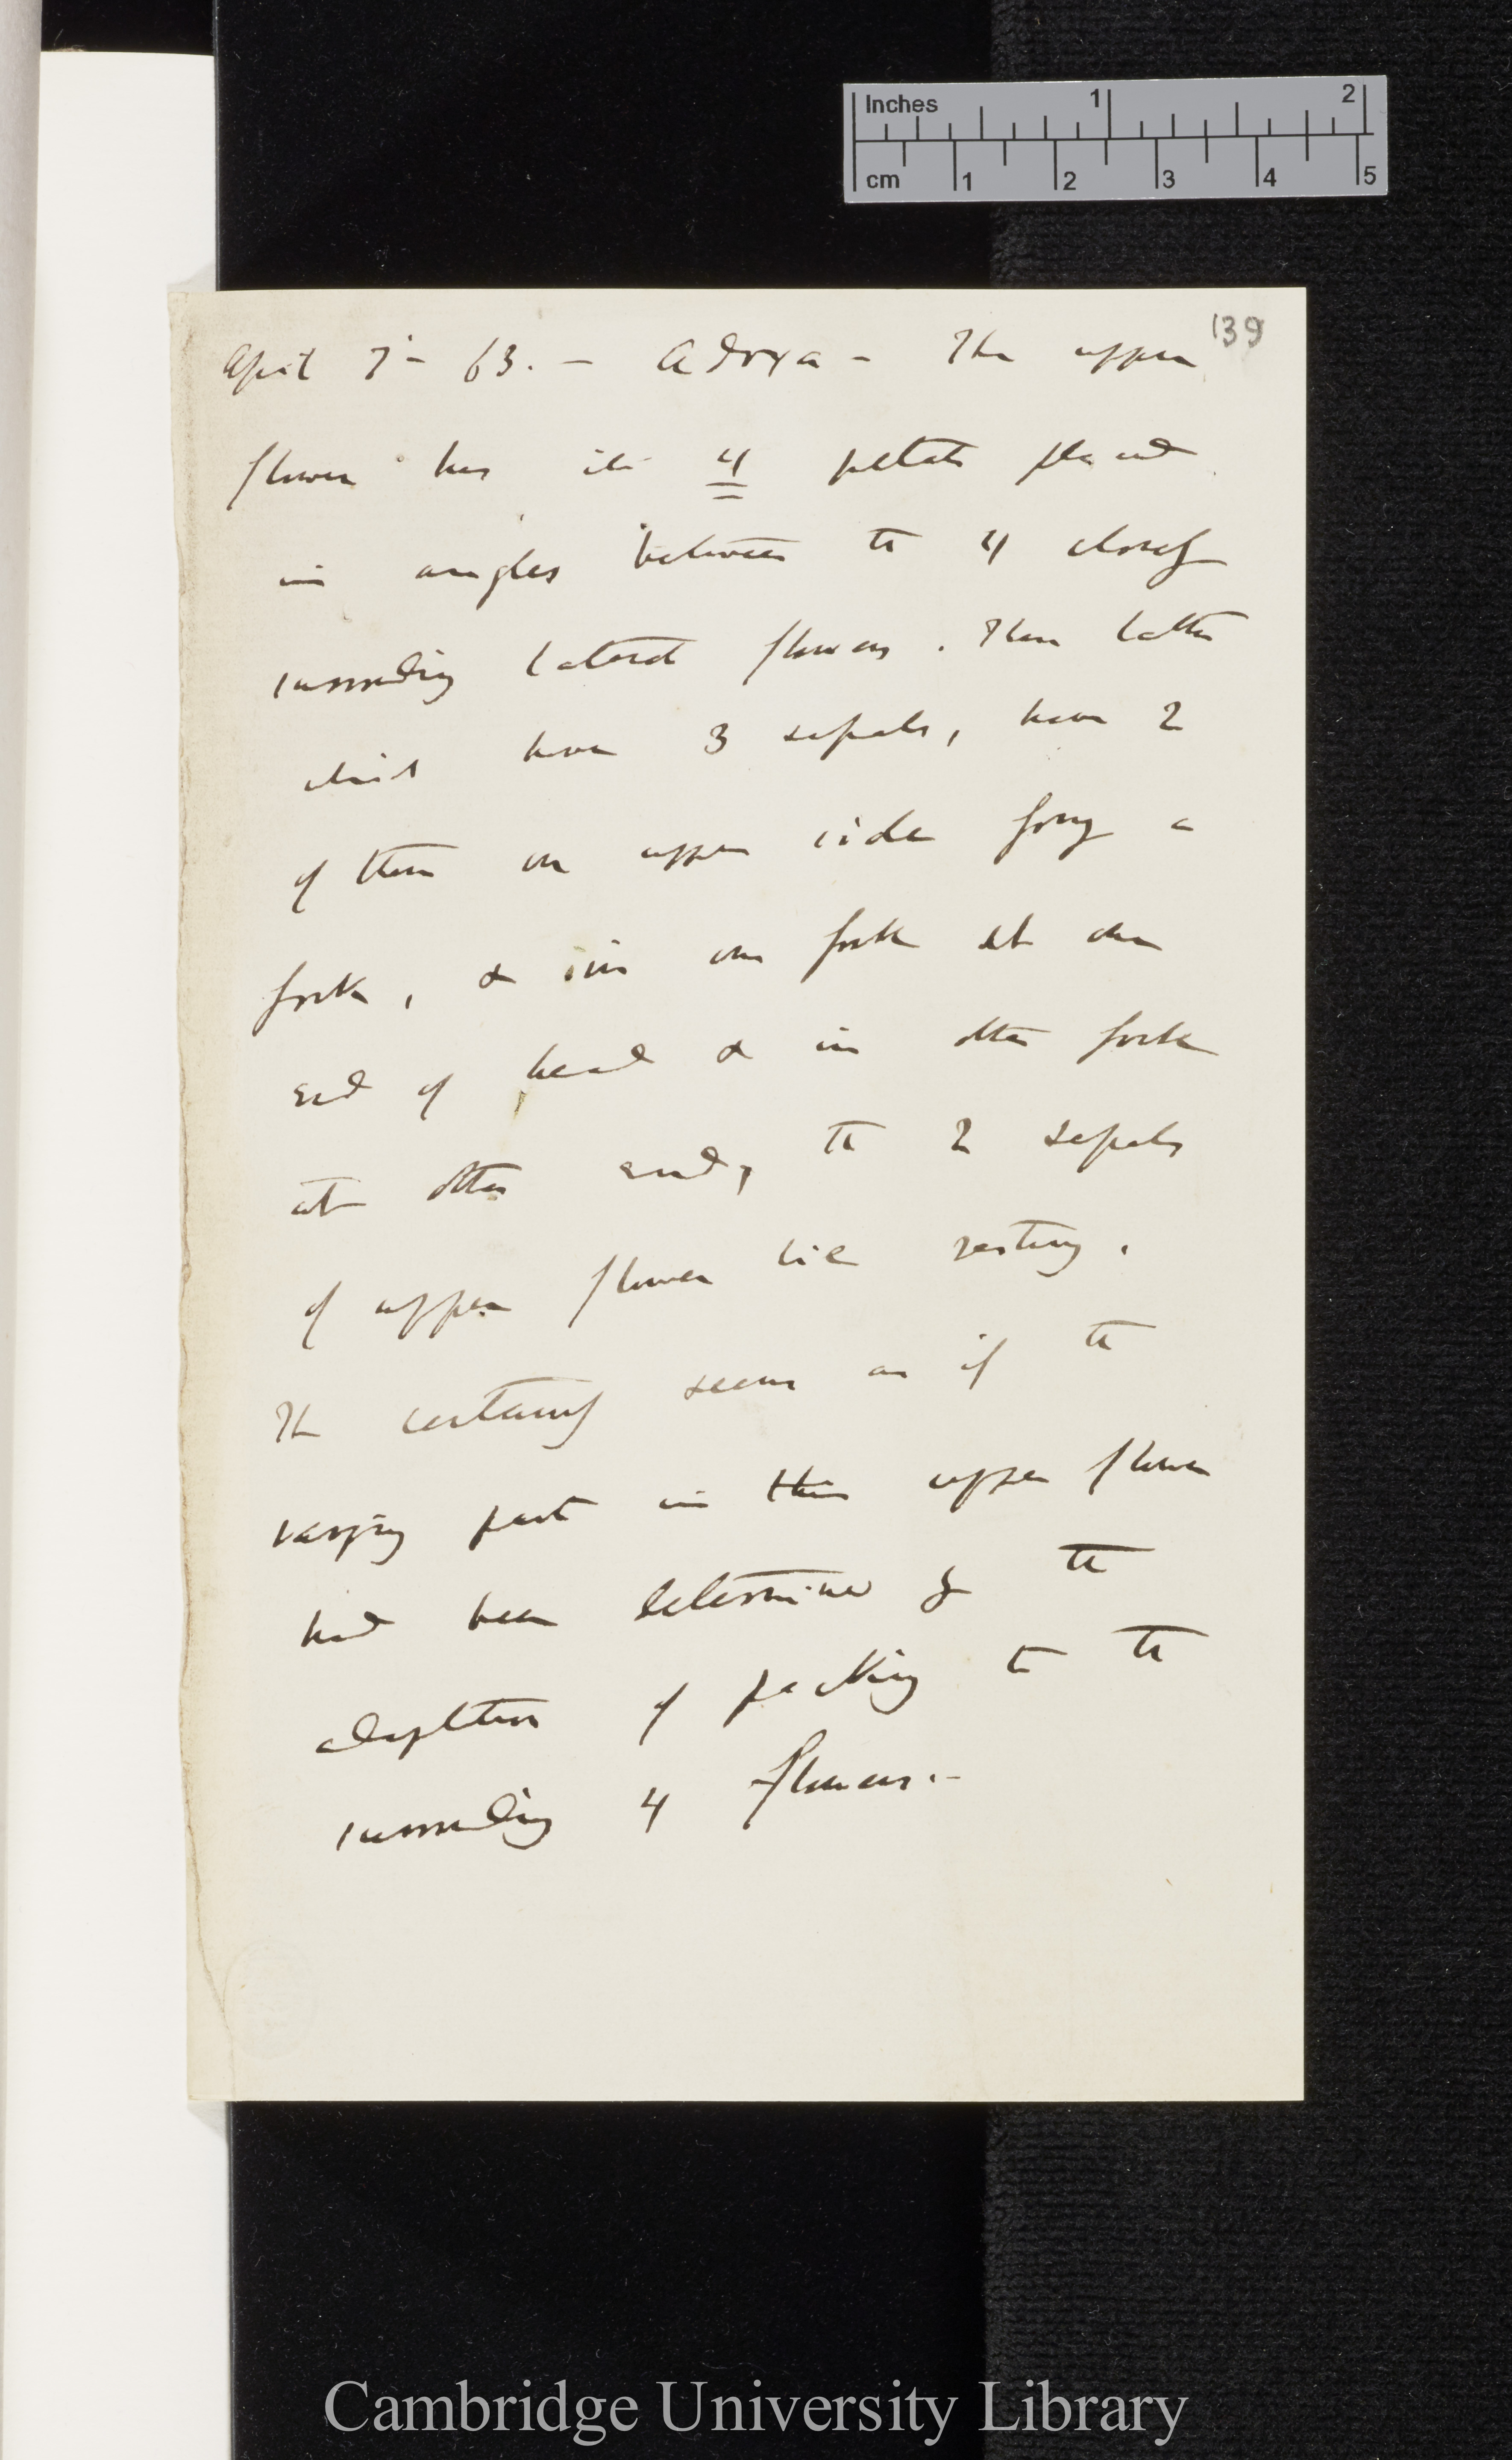 Inches 1 2
cm 1 2 3 4 5
139
April 7th 63. — Adoxa — The upper
flower has its 4 petals placed
in angles between the 4 closely
surrounding lateral flowers. These latter
which have 3 sepals, have 2
of them on upper side forming a
fork, & in one fork at one
end of head & in other fork
at other end, the 2 sepals
of upper flower lie resting.
It certainly seems as if the
varying part in this upper flower
had been determined by the
adaptation of packing to the
surrounding 4 flowers.—
Cambridge University Library